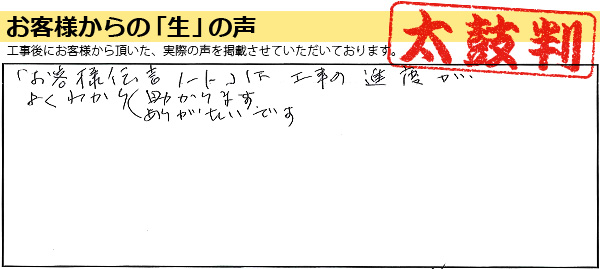 お客様からの「生」の声
太鼓判
工事後にお客様から頂いた、実際の声を掲載させていただいております。
「お客様伝言ノート」は 工事の 進度が
よくわかり 助かります
ありがたいです